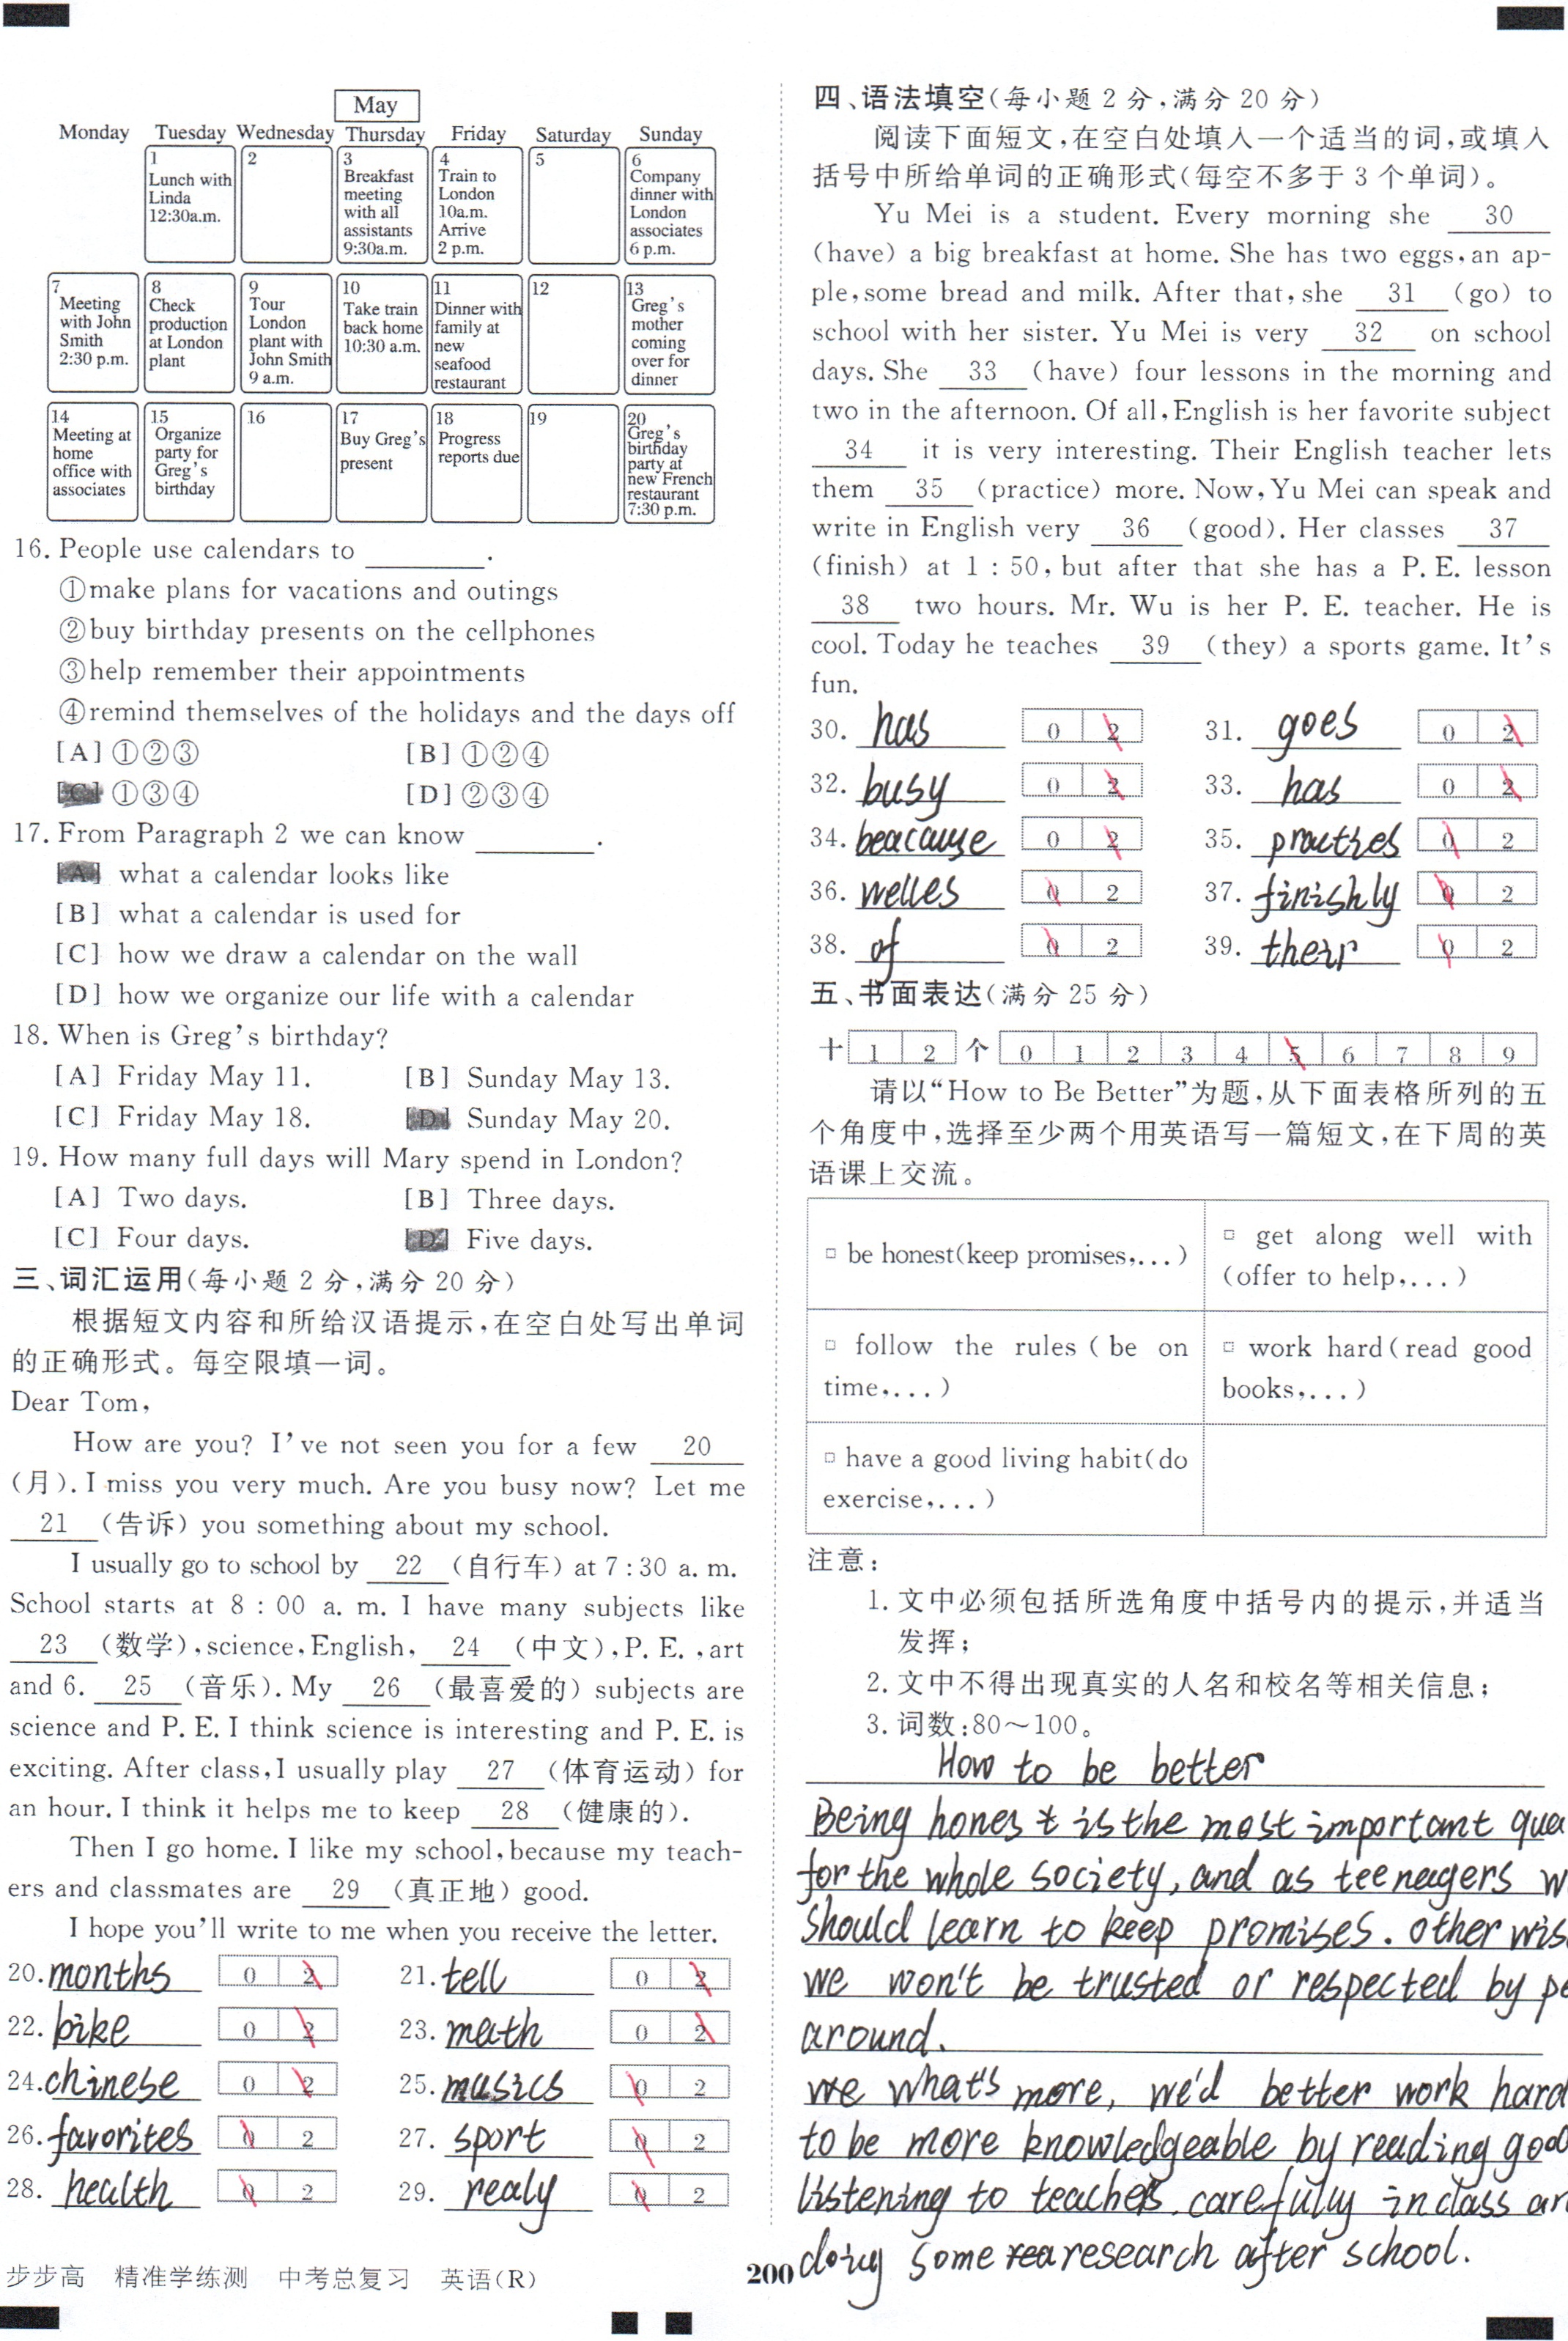 May
Monday Tuesday Wednesday Thursday Friday Saturday Sunday
1 Lunch with Linda 12:30a.m.
2
3 Breakfast meeting with all assistants 9:30a.m.
4 Train to London 10a.m. Arrive 2 p.m.
5
6 Company dinner with London associates 6 p.m.
7 Meeting with John Smith 2:30 p.m.
8 Check production at London plant
9 Tour London plant with John Smith 9 a.m.
10 Take train back home 10:30 a.m.
11 Dinner with family at new seafood restaurant
12
13 Greg's mother coming over for dinner
14 Meeting at home office with associates
15 Organize party for Greg's birthday
16
17 Buy Greg's present
18 Progress reports due
19
20 Greg's birthday party at new French restaurant 7:30 p.m.
16. People use calendars to ________.
①make plans for vacations and outings
②buy birthday presents on the cellphones
③help remember their appointments
④remind themselves of the holidays and the days off
[A] ①②③ [B] ①②④
[C] ①③④ [D] ②③④
17. From Paragraph 2 we can know ________.
[A] what a calendar looks like
[B] what a calendar is used for
[C] how we draw a calendar on the wall
[D] how we organize our life with a calendar
18. When is Greg's birthday?
[A] Friday May 11. [B] Sunday May 13.
[C] Friday May 18. [D] Sunday May 20.
19. How many full days will Mary spend in London?
[A] Two days. [B] Three days.
[C] Four days. [D] Five days.
三、词汇运用(每小题 2 分,满分 20 分)
根据短文内容和所给汉语提示,在空白处写出单词
的正确形式。每空限填一词。
Dear Tom,
How are you? I've not seen you for a few 20
(月). I miss you very much. Are you busy now? Let me
21 (告诉) you something about my school.
I usually go to school by 22 (自行车) at 7:30 a. m.
School starts at 8 : 00 a. m. I have many subjects like
23 (数学), science, English, 24 (中文), P. E. , art
and 6. 25 (音乐). My 26 (最喜爱的) subjects are
science and P. E. I think science is interesting and P. E. is
exciting. After class, I usually play 27 (体育运动) for
an hour. I think it helps me to keep 28 (健康的).
Then I go home. I like my school, because my teach-
ers and classmates are 29 (真正地) good.
I hope you'll write to me when you receive the letter.
20. months 0 2 21. tell 0 2
22. bike 0 2 23. math 0 2
24. chinese 0 2 25. musics 0 2
26. favorites 0 2 27. sport 0 2
28. health 0 2 29. realy 0 2
步步高 精准学练测 中考总复习 英语(R)
200
四、语法填空(每小题 2 分,满分 20 分)
阅读下面短文,在空白处填入一个适当的词,或填入
括号中所给单词的正确形式(每空不多于 3 个单词)。
Yu Mei is a student. Every morning she 30
(have) a big breakfast at home. She has two eggs, an ap-
ple, some bread and milk. After that, she 31 (go) to
school with her sister. Yu Mei is very 32 on school
days. She 33 (have) four lessons in the morning and
two in the afternoon. Of all, English is her favorite subject
34 it is very interesting. Their English teacher lets
them 35 (practice) more. Now, Yu Mei can speak and
write in English very 36 (good). Her classes 37
(finish) at 1 : 50, but after that she has a P. E. lesson
38 two hours. Mr. Wu is her P. E. teacher. He is
cool. Today he teaches 39 (they) a sports game. It's
fun.
30. has 0 2 31. goes 0 2
32. busy 0 2 33. has 0 2
34. beacause 0 2 35. practies 0 2
36. welles 0 2 37. finishly 0 2
38. of 0 2 39. their 0 2
五、书面表达(满分 25 分)
十 1 2 个 0 1 2 3 4 5 6 7 8 9
请以“How to Be Better”为题,从下面表格所列的五
个角度中,选择至少两个用英语写一篇短文,在下周的英
语课上交流。
□ be honest(keep promises,...)
□ get along well with (offer to help,...)
□ follow the rules (be on time,...)
□ work hard(read good books,...)
□ have a good living habit(do exercise,...)
注意:
1. 文中必须包括所选角度中括号内的提示,并适当
发挥;
2. 文中不得出现真实的人名和校名等相关信息;
3. 词数:80～100。
How to be better
Being honest is the most important qua
for the whole society, and as teenagers w
should learn to keep promises. other wis
we won't be trusted or respected by pe
around.
we what's more, we'd better work hard
to be more knowledgeable by reading good
listening to teachers carefully in class an
doing some rea research after school.